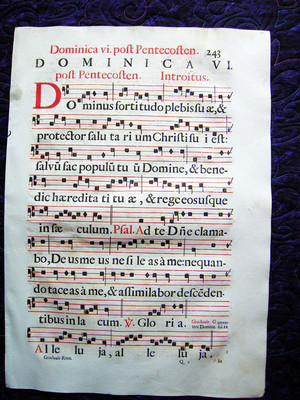 Dominica vi. post Pentecosten. 243
DOMINICA VI.
post Pentecosten. Introitus.
Dominus fortitudo plebis suæ, &
protector salu ta ri um Christi su i est:
salvũ fac populũ tu ũ Domine, & bene-
dic hæredita ti tu æ, & rege eos usque
in sæ culum. Psal. Ad te Dñe clama-
bo, De us me us ne si le as à me: nequan-
do taceas à me, & assimilabor descẽden-
tibus in la cum. ℣. Glo ri a.
Al le lu ja, al le lu ja.
Graduale Rom. Q